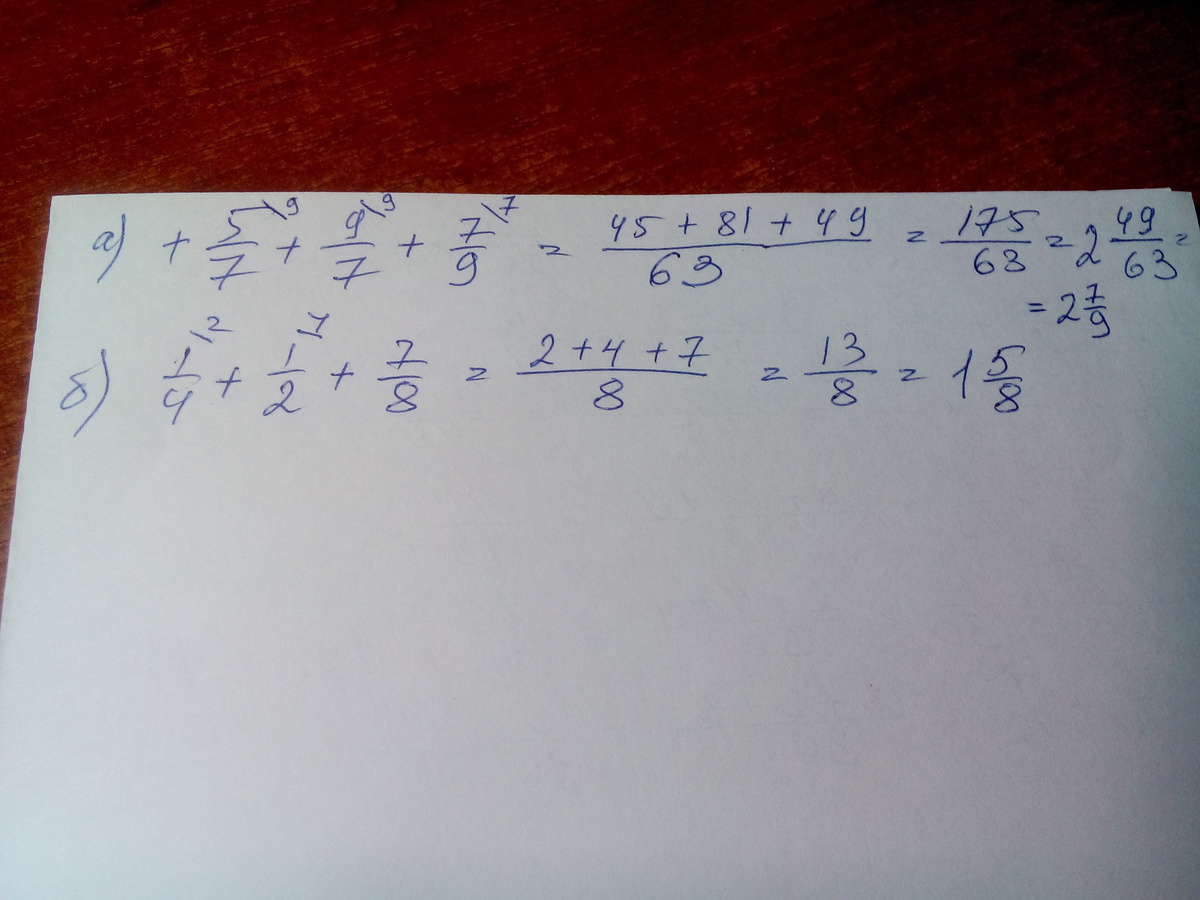 а) + 5/7 \9 + 9/7 \9 + 7/9 \7 = (45 + 81 + 49)/63 = 175/63 = 2 49/63 =
= 2 7/9
б) 1/4 \2 + 1/2 + 7/8 = (2 + 4 + 7)/8 = 13/8 = 1 5/8